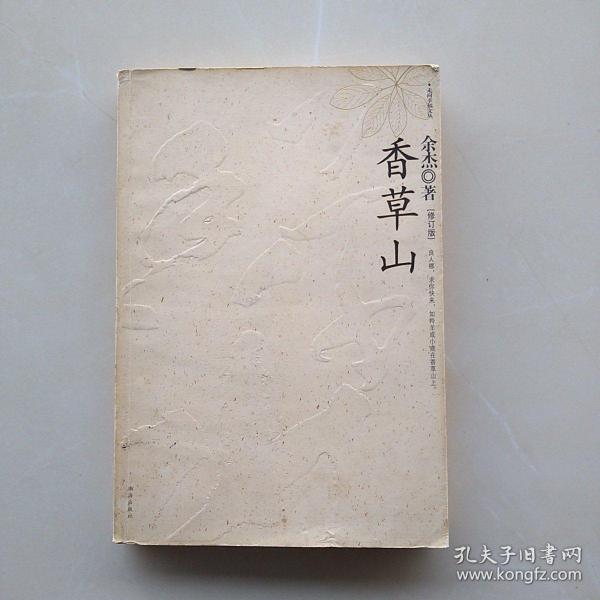 ·走向幸福文丛
余杰◎著
[修订版]
香草山
良人哪，求你快来，如羚羊或小鹿在香草山上。
南海出版社
孔夫子旧书网
www.kongfz.com